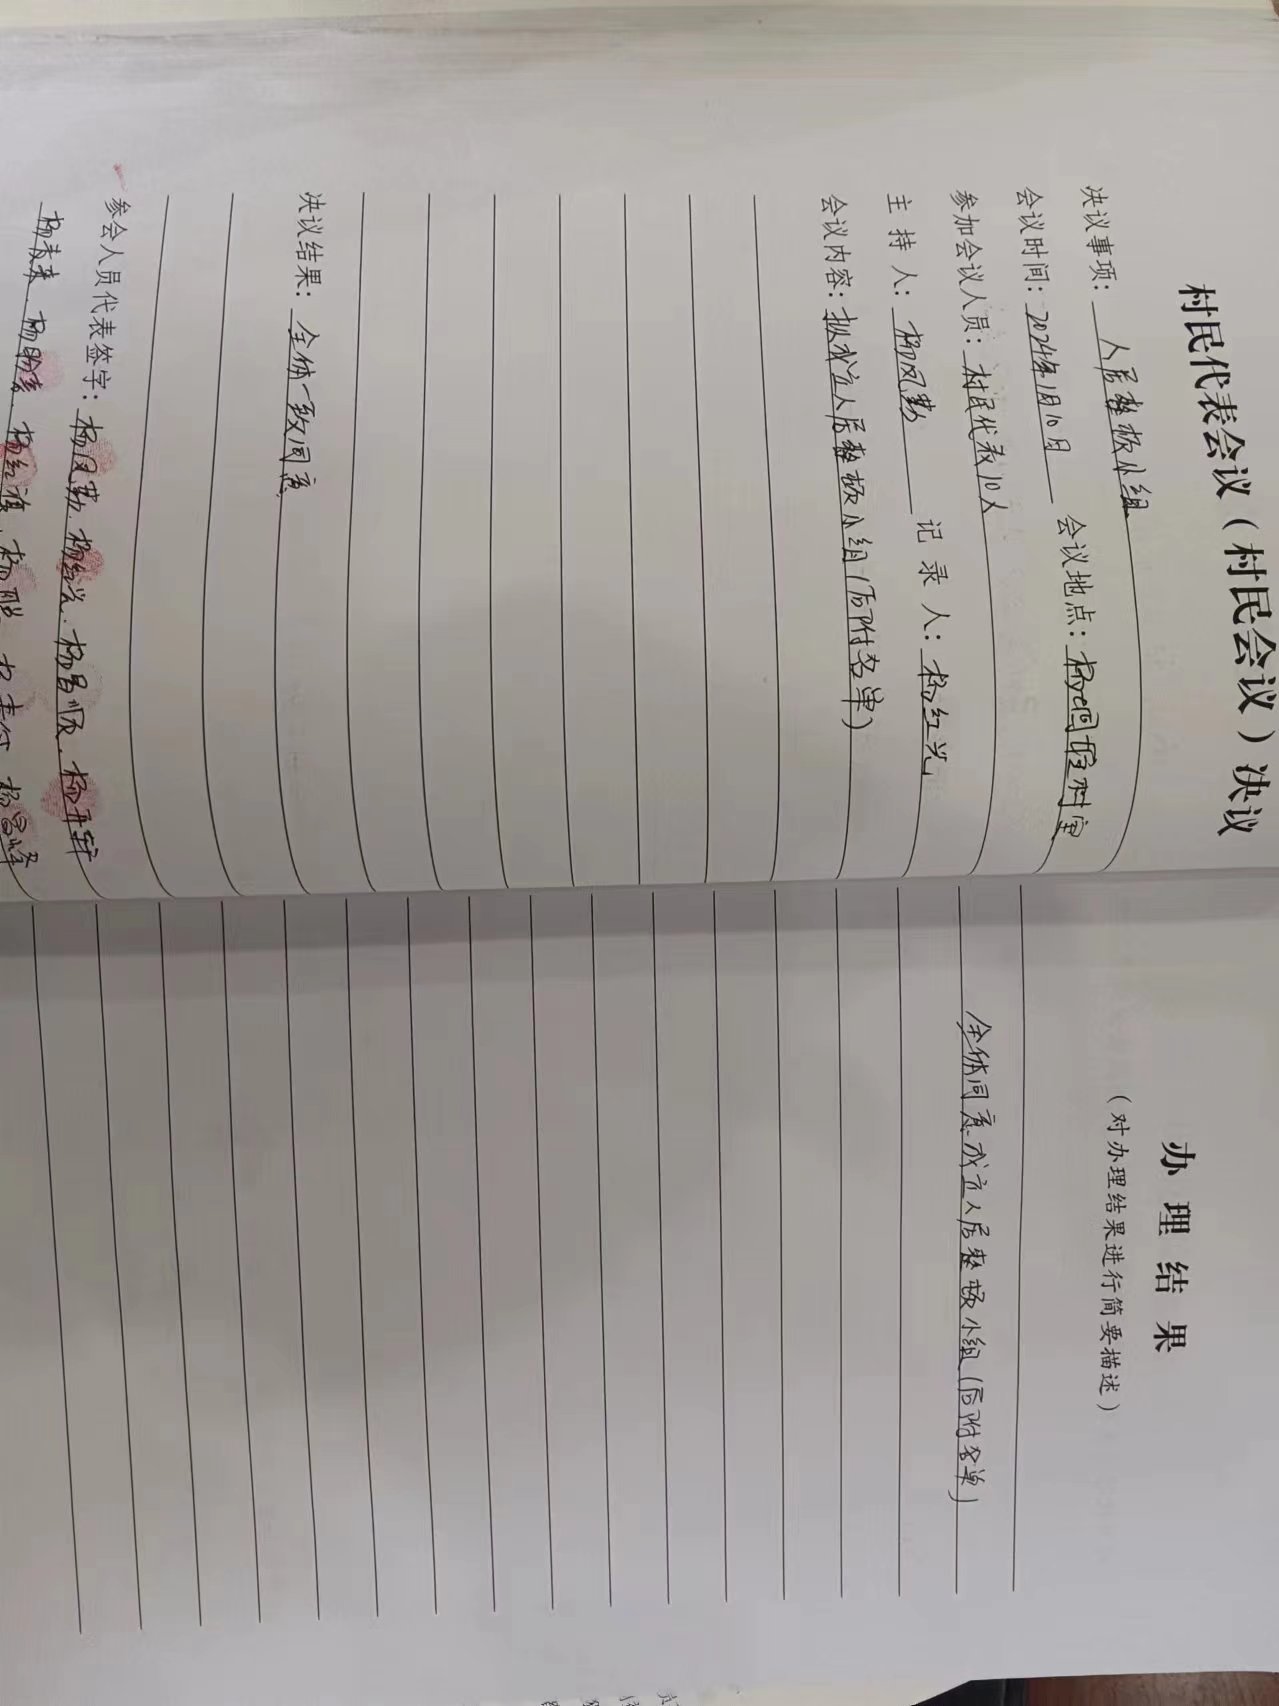 村民代表会议（村民会议）决议
决议事项：人居整顿小组
会议时间：2024年1月10日 会议地点：村室
参加会议人员：村民代表10人
主 持 人：杨凤勤 记 录 人：杨红光
会议内容：拟成立人居整顿小组（后附名单）
决议结果：全体一致同意
参会人员代表签字：杨凤勤、杨红光、杨昌顺、杨
杨、杨、杨、杨、杨
办 理 结 果
（对办理结果进行简要描述）
全体同意成立人居整顿小组（后附名单）